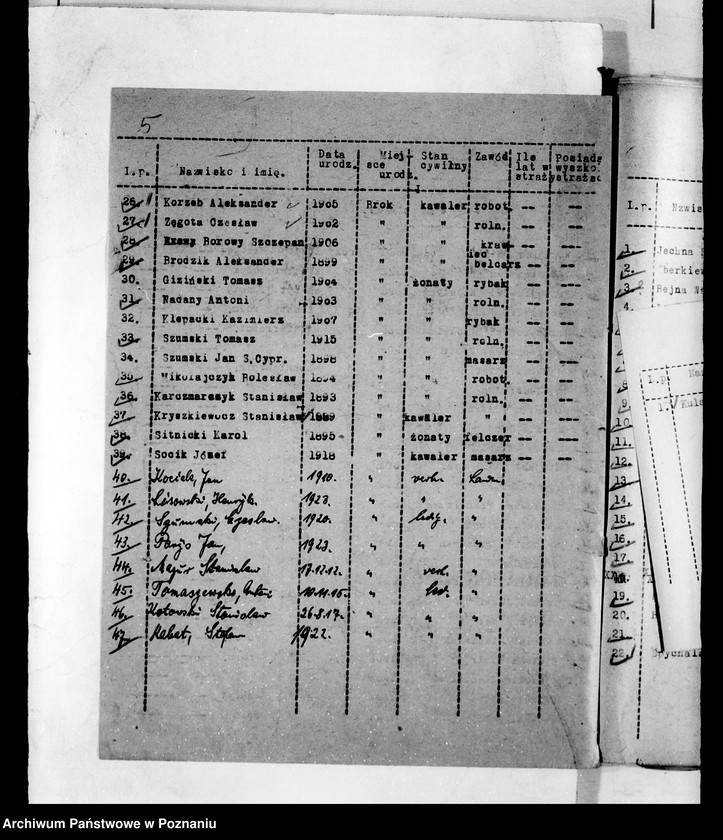 5
L.p. Nazwisko i imię. Data urodz. Miejsce urodz. Stan cywilny Zawód Ile lat w straży Posiada wyszko. strażac
26. Korzeb Aleksander 1905 Brok kawaler robot. -- --
27. Zęgota Czesław 1902 " " roln. -- --
28. Borowy Szczepan 1906 " " krawiec -- --
29. Brodzik Aleksander 1899 " " -- --
30. Giziński Tomasz 1904 " żonaty rybak -- --
31. Nadany Antoni 1903 " " roln. -- --
32. Klepacki Kazimierz 1907 " " rybak -- --
33. Szumski Tomasz 1915 " " roln. -- --
34. Szumski Jan S.Cypr. 1898 " " masarz -- --
35. Mikołajczyk Bolesław 1894 " " robot. -- --
36. Karczmarczyk Stanisław 1893 " " roln. -- --
37. Kryszkiewucz Stanisław 1889 " kawaler " -- --
38. Sitnicki Karol 1895 " żonaty felczer -- --
39. Socik Józef 1918 " kawaler masarz -- --
40. Jan 1910. " verh.
41. Lisowski, Henryk. 1923. " " "
42. Szumski, Czesław. 1920. " ledg. "
43. Jan, 1923. " " "
44. Mazur Stanisław 17.12.12. " verh. "
45. Tomaszewski, Antoni 10.11.15. " led. "
46. Kotowski Stanisław 26.8.17. " " "
47. Rabat, Stefan 1922. " " "
L.p. Nazwis
1. Jechna
2. Oberkiew
3. Bejna We
4.
8
9.
10
11.
12.
13.
14.
15.
16.
17.
19.
20.
21.
22. Spychal
l.p. Naz
1. Kula
Archiwum Państwowe w Poznaniu